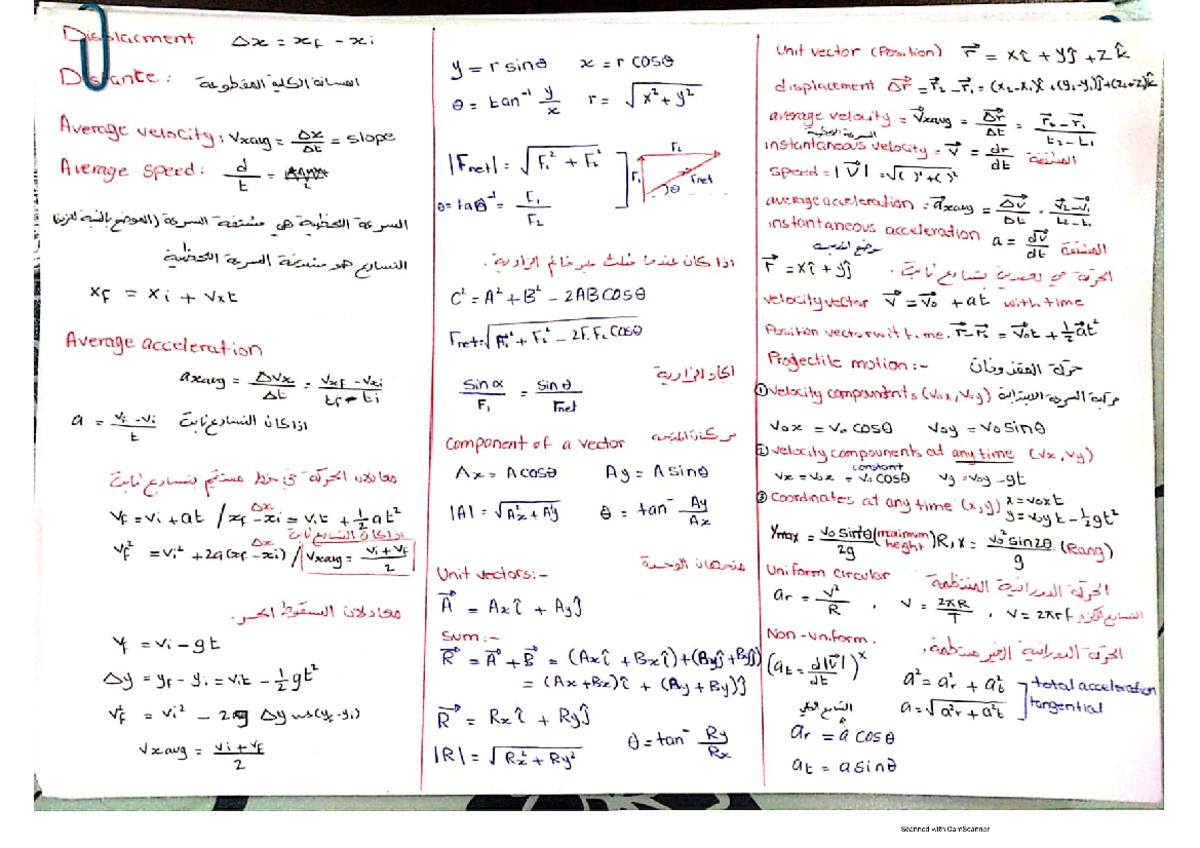 Displacment Δx = xf - xi
Distante : المسافة الكلية المقطوعة
Average velocity : Vxavg = Δx/Δt = slope
Average speed : d/t =
السرعة اللحظية هي مشتقة السرعة (الموضع بالنسبة للزمن)
التسارع هو مشتقة السرعة اللحظية
xf = xi + Vxt
Average acceleration
axavg = ΔVx/Δt = Vxf - Vxi/tf - ti
a = Vf - Vi/t اذا كان التسارع ثابت
معادلات الحركة في خط مستقيم بتسارع ثابت
Vf = Vi + at / xf - xi = Vit + 1/2 at² Δx
اذا كان التسارع ثابت
Vf² = Vi² + 2a(xf - xi) / Vxavg = Vi + Vf/2 Δx
معادلات السقوط الحر.
Vf = Vi - gt
Δy = yf - yi = Vit - 1/2 gt²
Vf² = Vi² - 2g Δy (yf - yi)
Vxavg = Vi + Vf/2
y = r sinθ x = r cosθ
θ = tan⁻¹ y/x r = √x² + y²
|Fnet| = √F1² + F2²
F2
F1 Fnet
θ
θ = tan⁻¹ = F1/F2
اذا كان عندما مثلث غير قائم الزاوية.
C² = A² + B² - 2AB COSθ
Fnet = √F1² + F2² - 2F1F2 COSθ
ايجاد الزاوية
Sin α/F1 = Sin θ/Fnet
Component of a vector مركبات المتجه
Ax = A cosθ Ay = A sinθ
|A| = √Ax² + Ay² θ = tan⁻ Ay/Ax
متجهات الوحدة
Unit vectors:-
A = Axî + Ayĵ
Sum:-
R = A + B = (Axî + Bxî) + (Ayĵ + Byĵ)
= (Ax + Bx)î + (Ay + By)ĵ
R = Rxî + Ryĵ
|R| = √Rx² + Ry² θ = tan⁻ Ry/Rx
Unit vector (Position) r = xî + yĵ + z k̂
displacement Δr = r2 - r1 = (x2 - x1)î + (y2 - y1)ĵ + (z2 - z)k̂
average velouity = Vxavg = Δr/Δt = r2 - r1/t2 - t1
السرعة اللحظية
instantaneous velocity = V = dr/dt المشتقة
speed = |V| = √( )² + ( )²
average acceleration = axavg = ΔV/Δt = V2 - V1/t2 - t1
instantaneous acceleration a = dV/dt المشتقة
r = xî + yĵ . الحركة في بعدين بتسارع ثابت
velocity vector V = V0 + at with time
Position vector with time. r - r1 = V0t + 1/2 at²
Projectile motion:- حركة المقذوفات
① velocity compoundnts (V0x, V0y) مركبة السرعة الابتدائية
V0x = V0 cosθ V0y = V0 sinθ
② velocity compounents at any time (Vx, Vy)
constant
Vx = V0x = V0 cosθ Vy = V0y - gt
③ Coordinates at any time (x, y) x = V0xt
y = V0yt - 1/2 gt²
Ymax = V0 sin²θ/2g (maximum height) R, x = V0² sin2θ/g (Rang)
Uniform circular الحركة الدورانية المنتظمة
ar = V²/R , V = 2πR/T , V = 2πrf التسارع المركزي
Non - Uniform. الحركة الدورانية الغير منتظمة.
(at = d|V|/dt)ˣ a² = ar² + at² total acceleration
a = √a²r + a²t tangential
التسارع الكلي
ar = a cosθ
at = a sinθ
Scanned with CamScanner